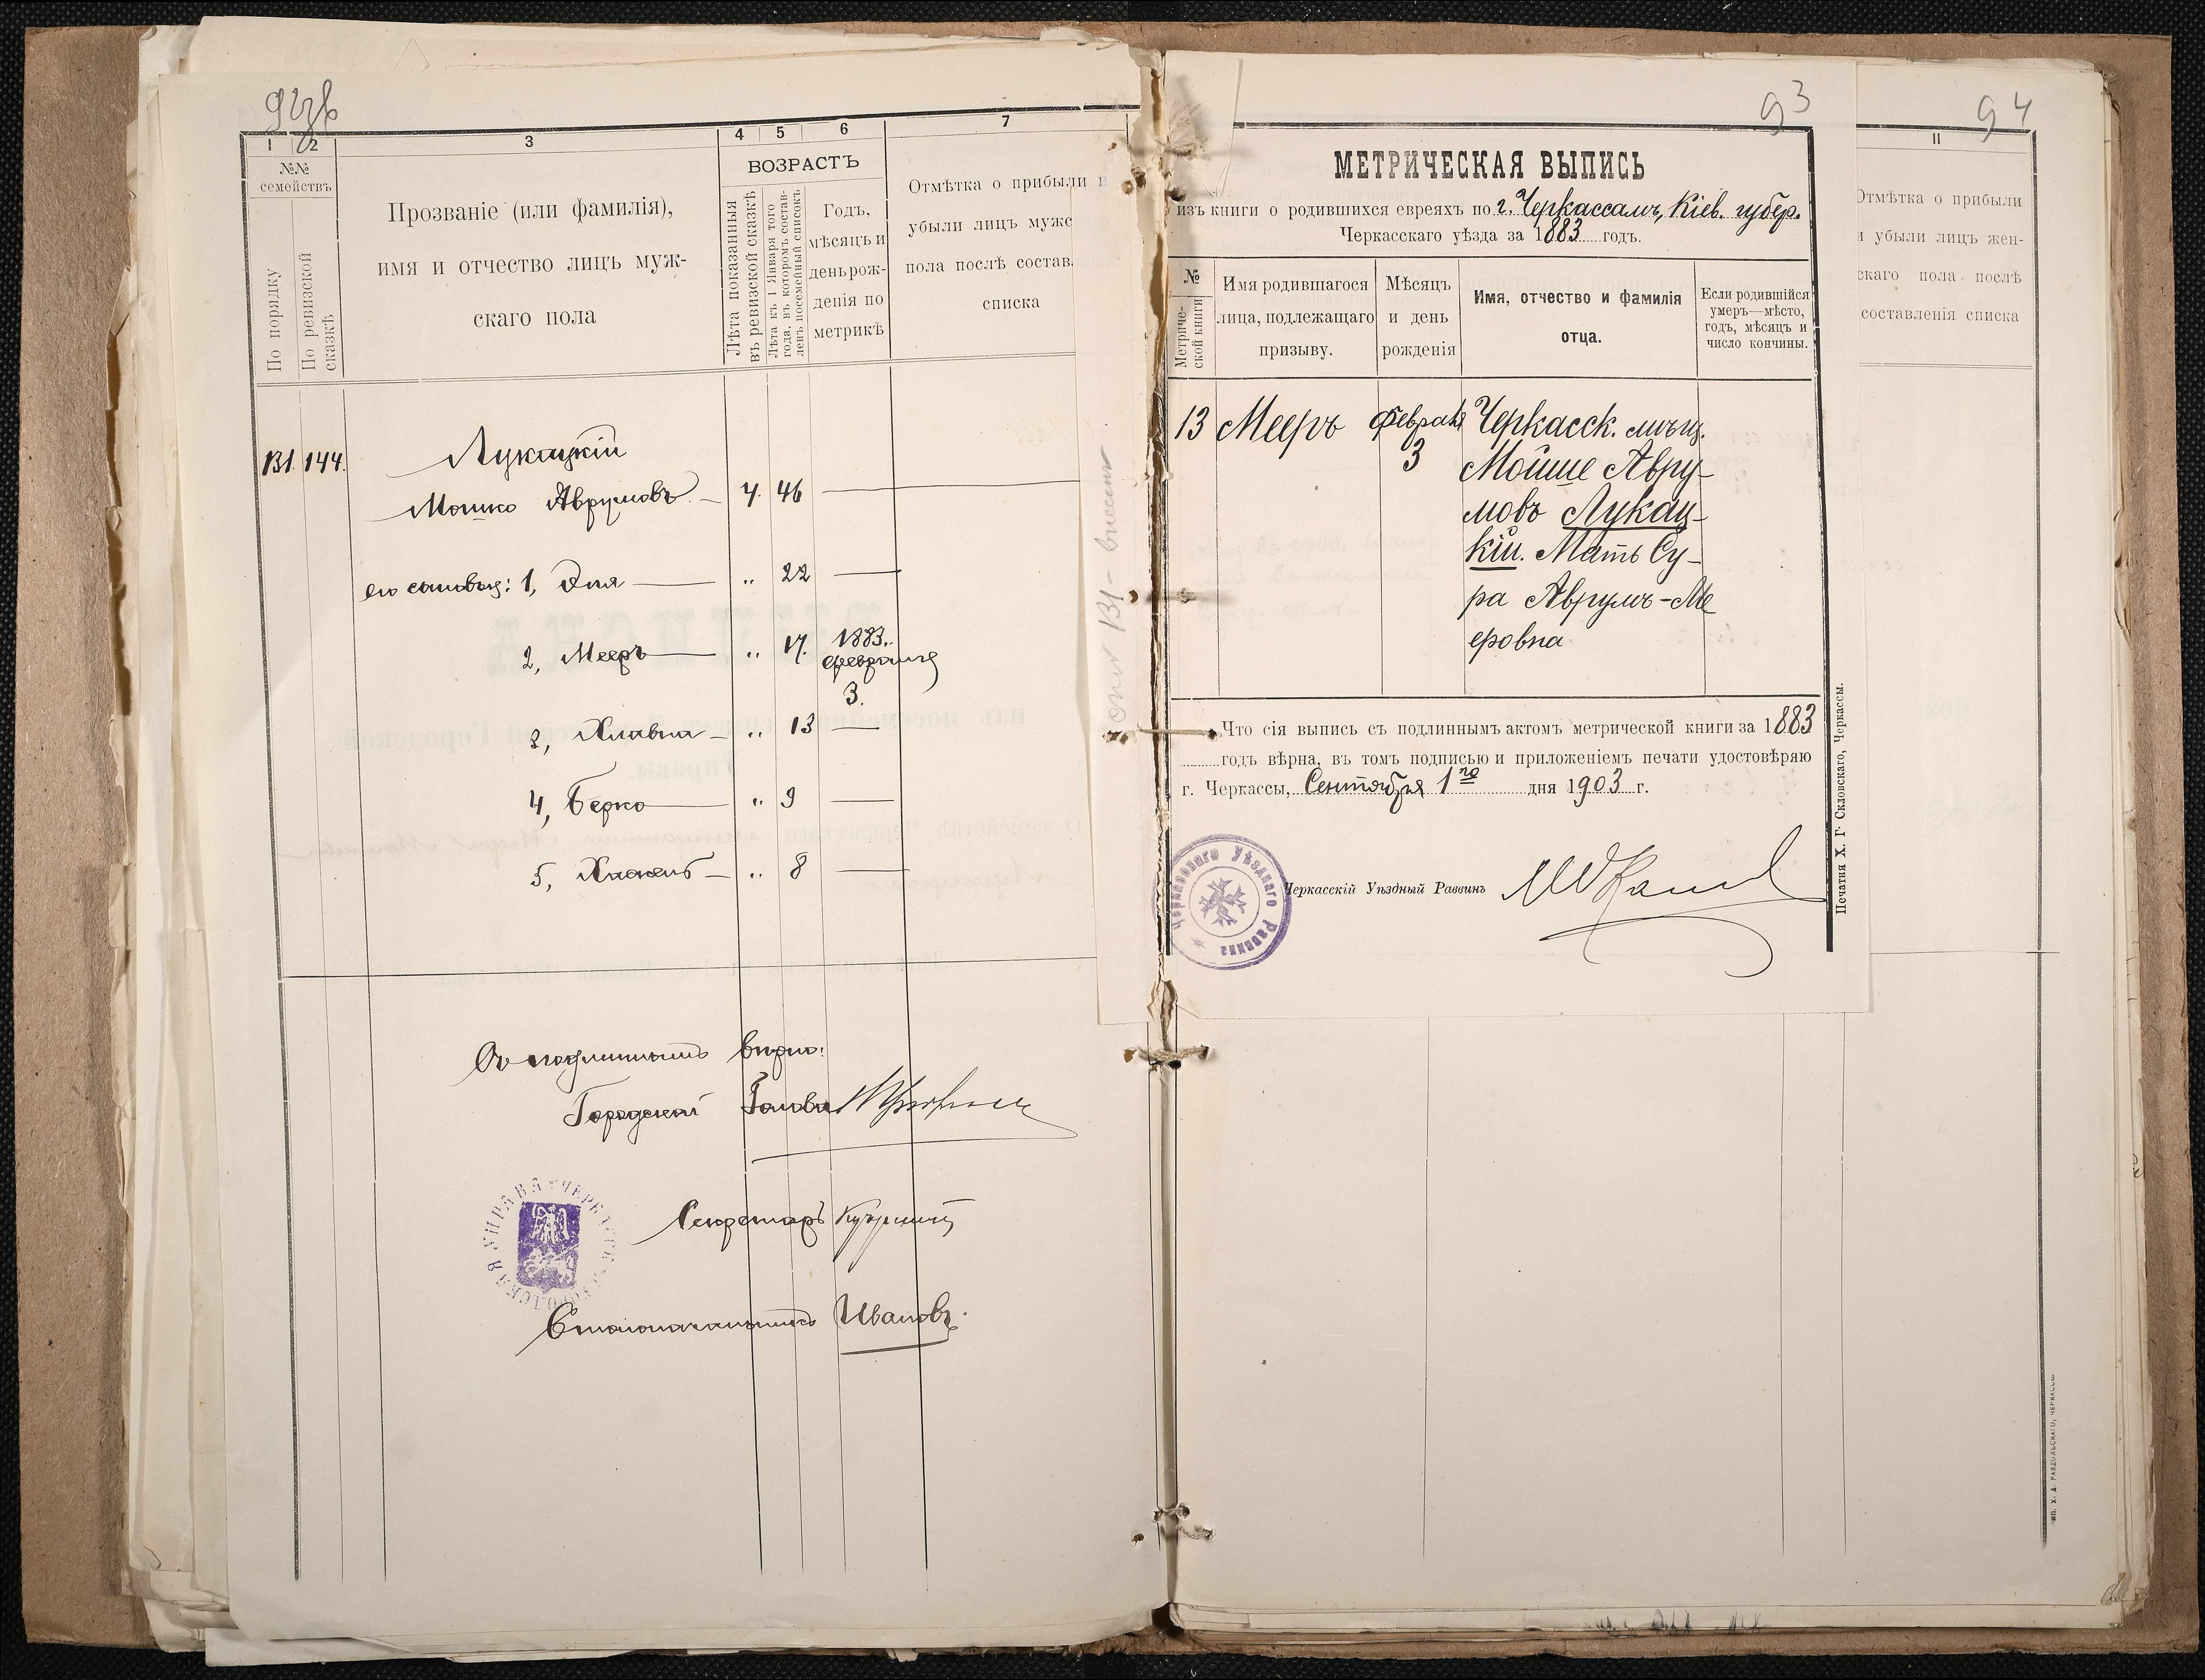 1
2
3
4
5
6
7
№№
семействъ
По порядку
По ревизской
сказкѣ
Прозваніе (или фамилія),
имя и отчество лицъ муж-
скаго пола
ВОЗРАСТЪ
Лѣта показанныя
въ ревизской сказкѣ
Лѣта къ 1 Января того
года, въ которомъ состав-
ленъ посемейный списокъ
Годъ,
мѣсяцъ и
день рож-
денія по
метрикѣ
Отмѣтка о прибыли и
убыли лицъ мужс
пола послѣ состав.
списка
131. 144. Лукацкій
Мошко Аврумовъ — 4. 46 —
его сыновья: 1, Эля — „ 22 —
2, Мееръ — „ 17. 1883.
февраля
3.
3, Хлавна — „ 13 —
4, Берко — „ 9 —
5, — „ 8 —
Съ подлиннымъ вѣрно:
Городской Голова
Секретарь
Столоначальникъ Ивановъ.
93
МЕТРИЧЕСКАЯ ВЫПИСЬ
изъ книги о родившихся евреяхъ по г. Черкассамъ, Кіев. губер.
Черкасскаго уѣзда за 1883 годъ.
№
Метриче-
ской книги
Имя родившагося
лица, подлежащаго
призыву.
Мѣсяцъ
и день
рожденія
Имя, отчество и фамилія
отца.
Если родившійся
умеръ—мѣсто,
годъ, мѣсяцъ и
число кончины.
13 Мееръ Февраля Черкасск. мѣщ.
3 Мойше Авру-
мовъ Лукац-
кій. Мать Су-
ра Аврумъ-Ме
еровна
Что сія выпись съ подлиннымъ актомъ метрической книги за 1883
годъ вѣрна, въ томъ подписью и приложеніемъ печати удостовѣряю
г. Черкассы, Сентября 1го дня 1903 г.
Черкасскій Уѣздный Раввинъ
Черкасскаго Уѣзднаго Раввина
Печатня Х. Г. Скловскаго, Черкассы.
94
11
Отмѣтка о прибыли
и убыли лицъ жен-
скаго пола послѣ
составленія списка